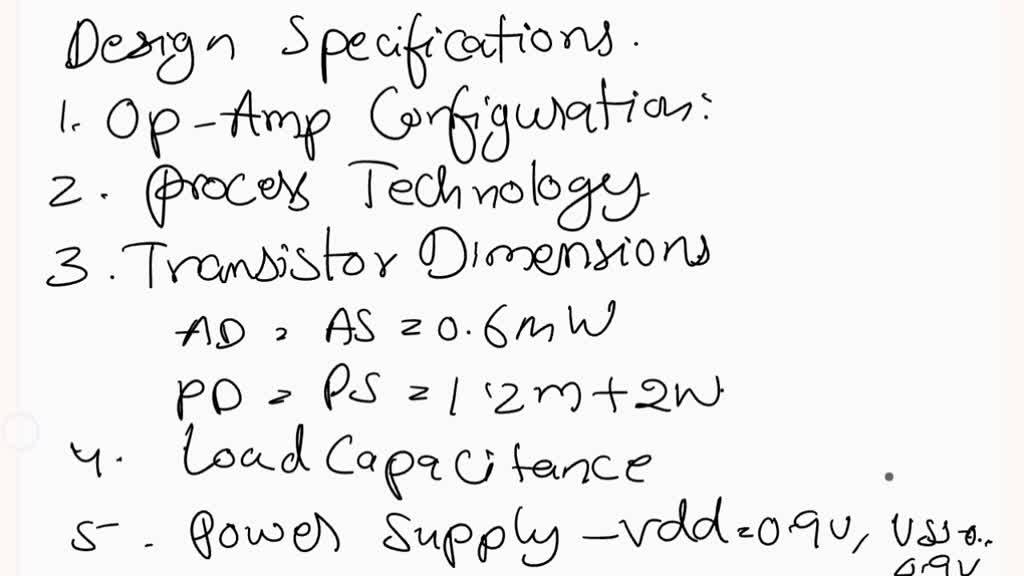 Design Specifications.
1. Op-Amp Configuration:
2. Process Technology
3. Transistor Dimensions
AD = AS = 0.6m W
PD = PS = 1.2m+2W
4. Load Capacitance
5. Power Supply - Vdd = 0.9V, VSS =
0.9V